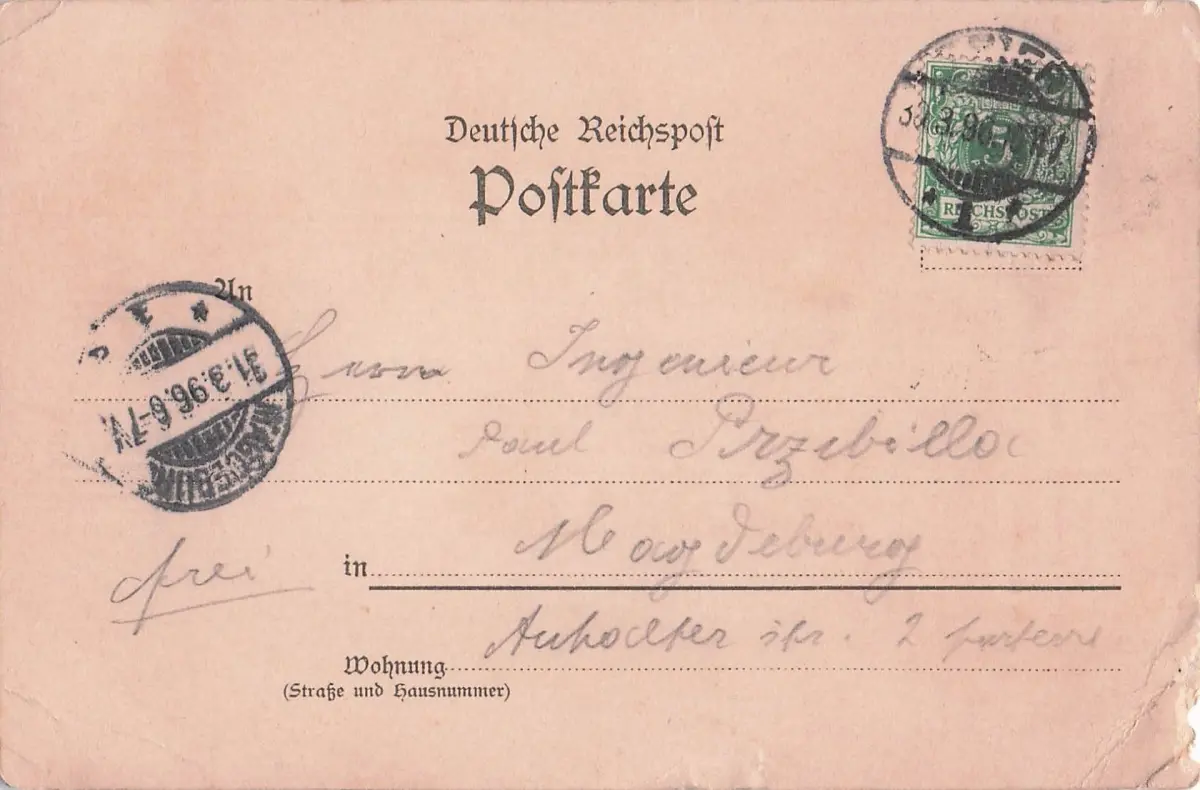 Deutsche Reichspost
Postkarte
5
REICHSPOST
3.96
1
An
31.3.96.6-7V.
MAGDEBURG
Herrn Ingenieur
Paul Przibilla
in Magdeburg
frei
Anhalter str. 2 parterre
Wohnung
(Straße und Hausnummer)